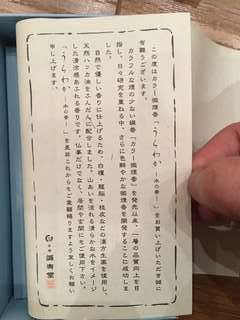 この度はカラー微煙香「うらわか 水の香り」をお買い上げいただき誠に
有難うございます。
カラフルな煙の少ない線香「カラー微煙香」を発売以来、一層の品質向上を目
指し、日々研究を重ねる中、さらに色鮮やかな微煙香を開発することに成功しま
した。
自然で優しい香りに仕上げるため、白檀・龍脳・桂皮などの漢方生薬を使用し、
天然ハッカ油をふんだんに配合しました。山あいを流れる清らかな水をイメージ
した清涼感あふれる香りです。仏事だけでなく、居間や玄関にもご使用下さい。
「うらわか 水の香り」を是非これからもご愛顧賜りますよう宜しくお願い
申し上げます。
誠寿堂